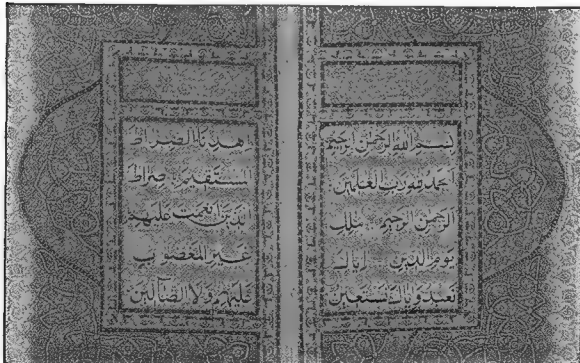 بسم الله الرحمن الرحيم
الحمد لله رب العلمين
الرحمن الرحيم ملك
يوم الدين اياك
نعبد و اياك نستعين
اهدنا الصراط
المستقيم صراط
الذين انعمت عليهم
غير المغضوب
عليهم ولا الضالين